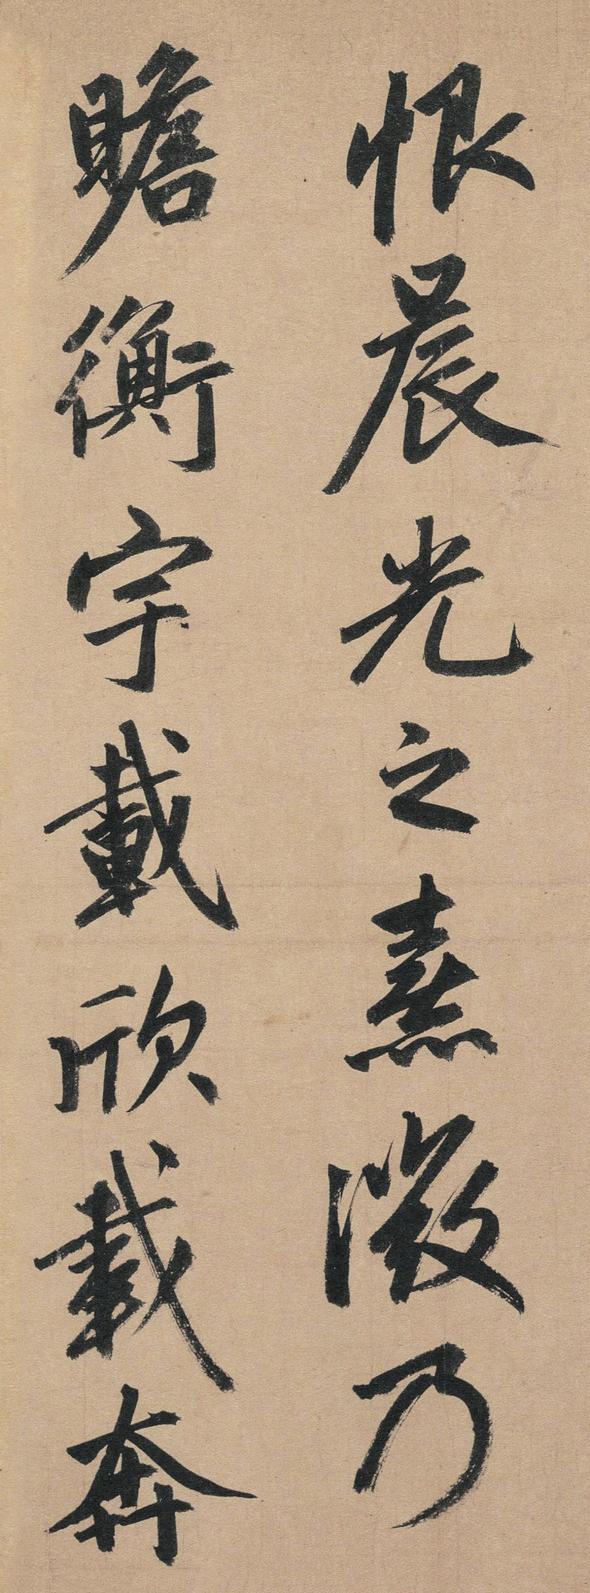 恨晨光之熹微乃
瞻衡宇載欣載奔